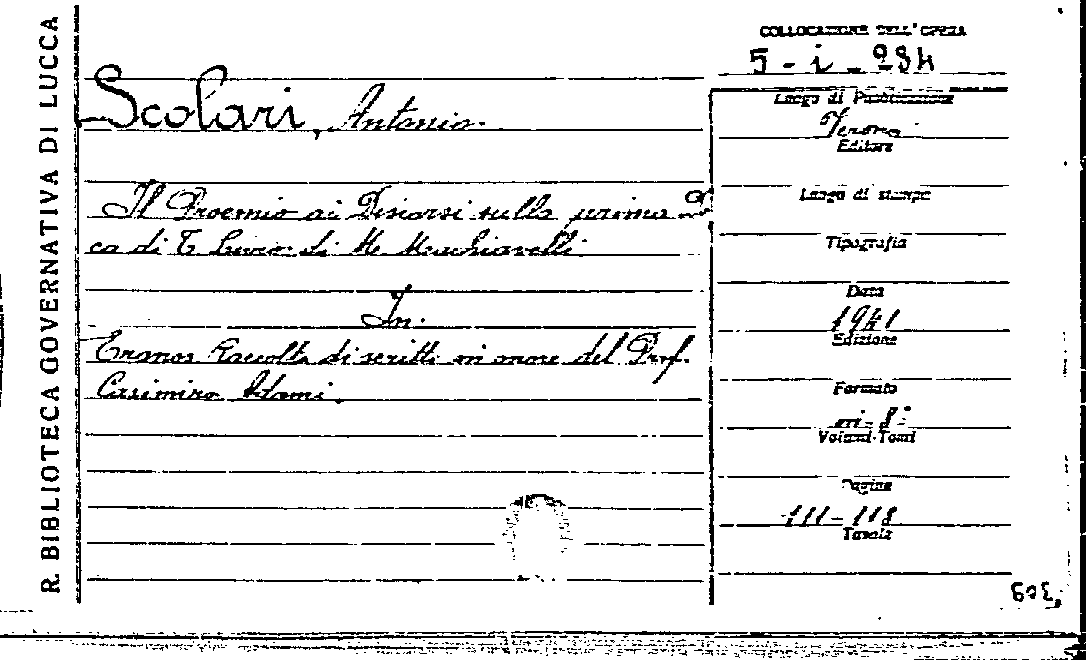 R. BIBLIOTECA GOVERNATIVA DI LUCCA
COLLOCAZIONE DELL'OPERA
5 - i - 284
Scolari, Antonio.
Il Proemio ai Discorsi sulla prima De
ca di T. Livio di N. Machiavelli
In.
Eranos Raccolta di scritti in onore del Prof.
Casimiro Adami.
Luogo di Pubblicazione
Verona
Editore
Luogo di stampa
Tipografia
Data
1941
Edizione
Formato
in-8°
Volumi-Tomi
Pagine
111-118
Tavole